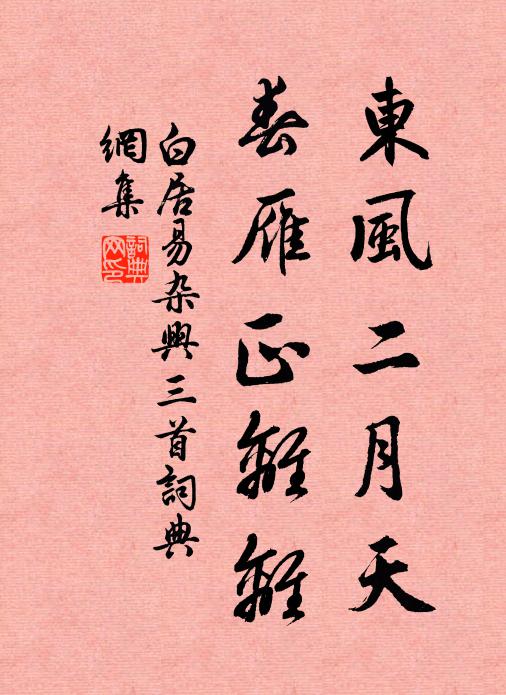 東風二月天
春雁正離離
白居易杂興三首詞典
網集
詞典網印